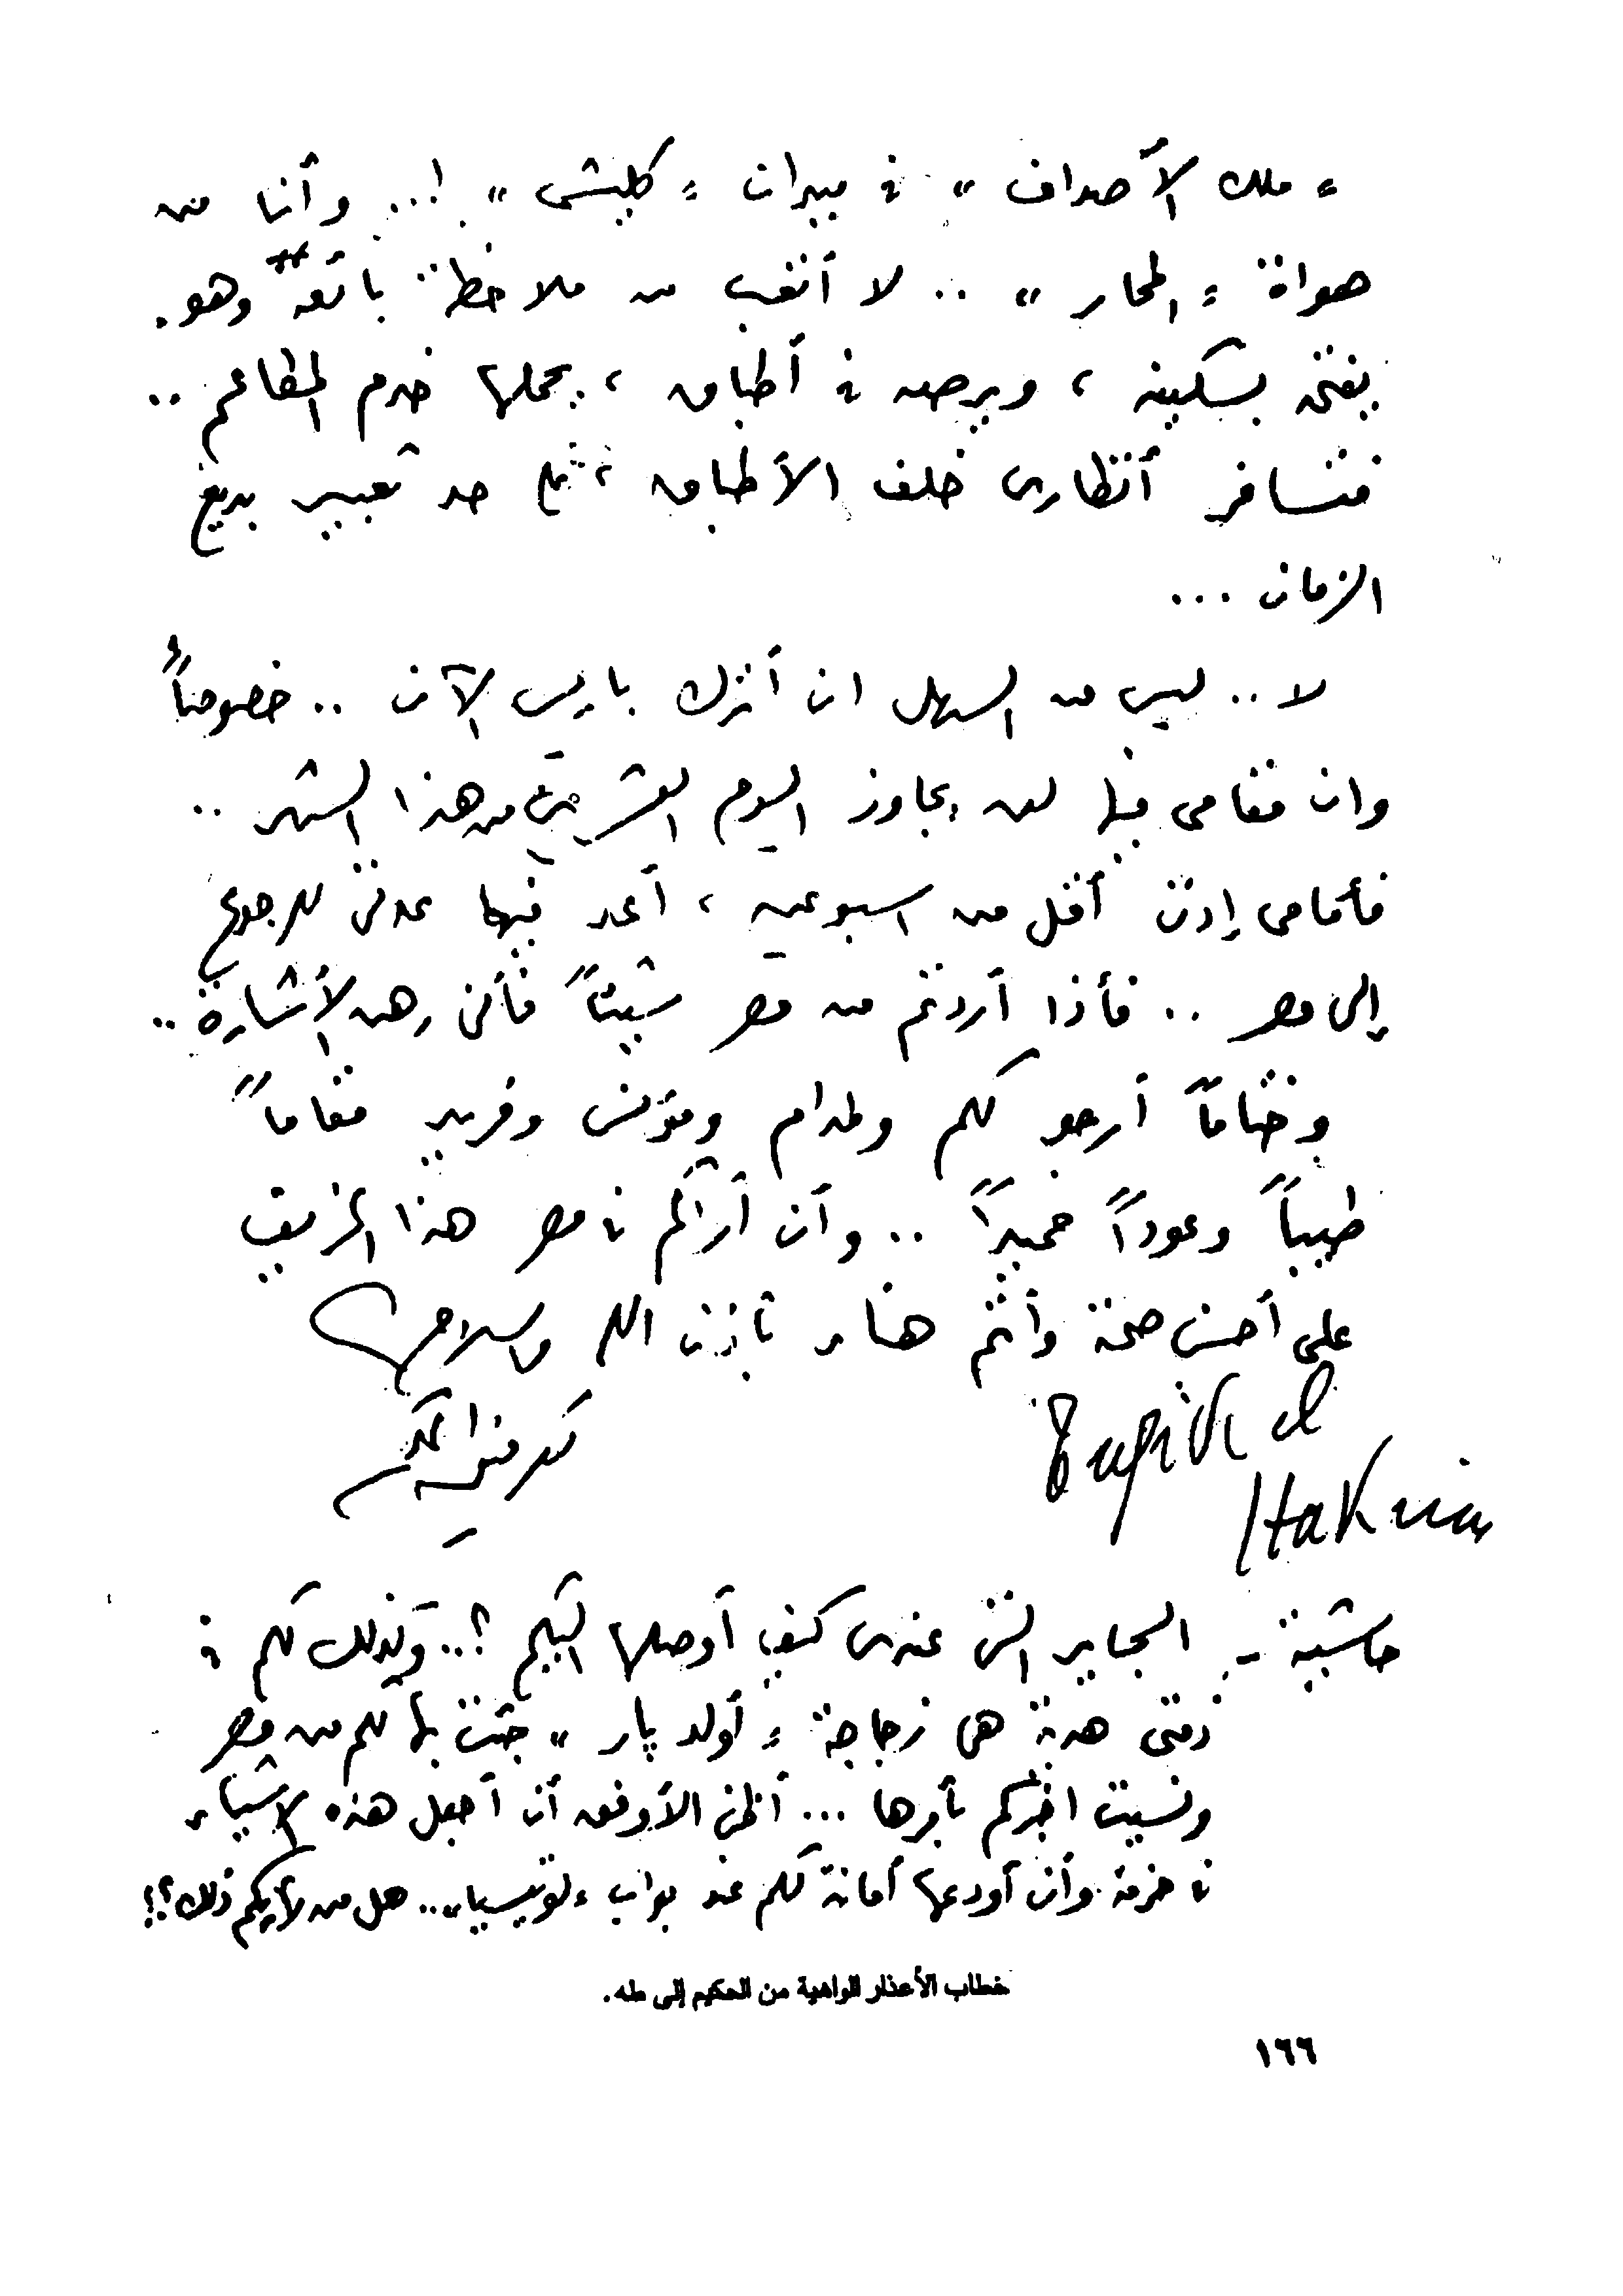 « ملك الأصداف » في ميدان « كليشى » !... وأنا من
هواة « المحار » .. لا أتعب من ملاحظة بائعه وهو
يفتحه بسكينه ، ويرصه في أطباق ، يحملها خدم المطاعم ..
فتسافر أنظارى خلف الأطباق ، على حد تعبير بديع
الزمان ...
لا .. ليس من السهل ان أترك باريس الآن .. خصوصاً
وان مقامى فيها لن يجاوز اليوم العشرين من هذا الشهر ..
فأمامى إذن أقل من اسبوعين ، أعد فيها عدتى للرجوع
إلى مصر .. فأذا أردتم من مصر شيئاً فأنى رهن الأشارة ..
وختاماً أرجو لكم ولمدام ومؤنس وفريد مقاماً
طيباً وعوداً حميداً .. وأن أراكم في مصر هذا الخريف
على أحسن صحة وأتم هناء بأذن الله والسلام
توفيق الحكيم
Tewfik el
Hakim
حاشية - السجاير التى عندى كيف أوصلها اليكم ؟.. وكذلك لكم في
ذمتى هدية هى زجاجة « أولد پار » جئت بها لكم من مصر
ونسيت اخبركم بأمرها ... أظن الأوفق أن أجعل هذه الأشياء
في حزمة وأن أودعها أمانة لكم عند بواب « لوتيسيا » .. هل من رأيكم ذلك ؟!
خطاب الأعذار الواهية من الحكيم إلى طه .
١٦٦